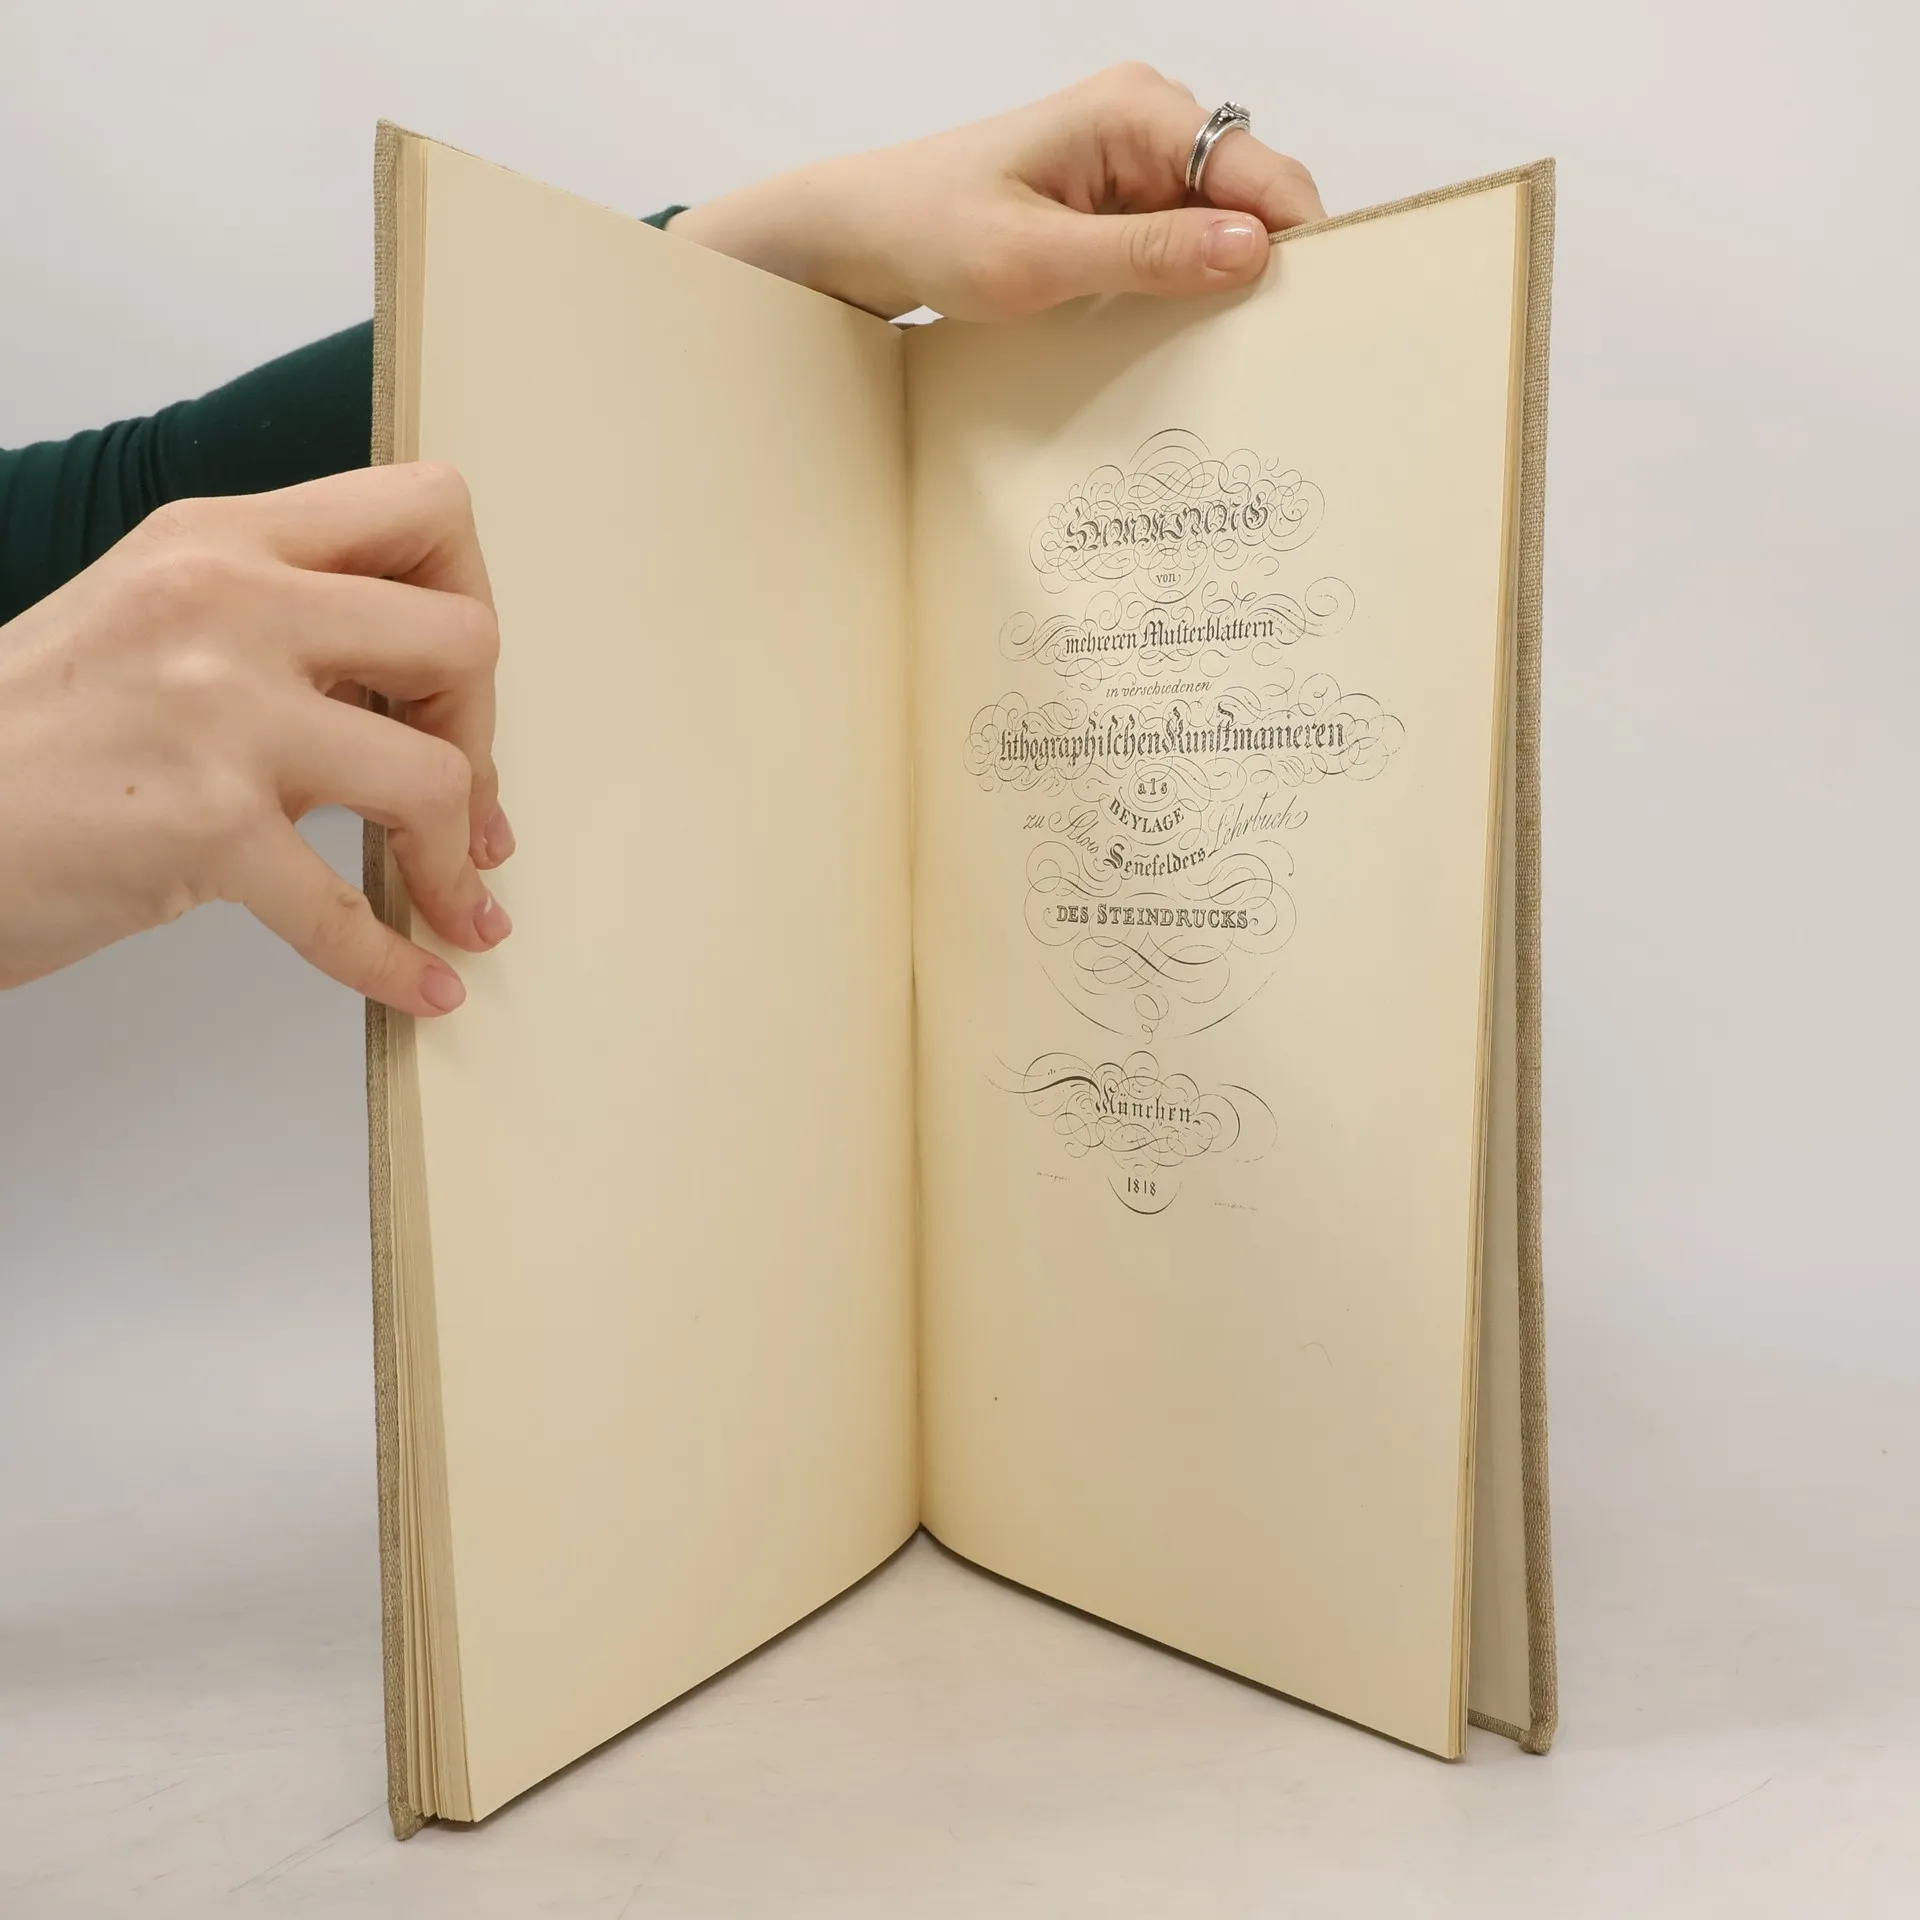 SAMMLUNG
von
mehreren Musterblättern
in verschiedenen
lithographischen Kunstmanieren
als
BEYLAGE
zu Alois Senefelders Lehrbuch
DES STEINDRUCKS
München
1818